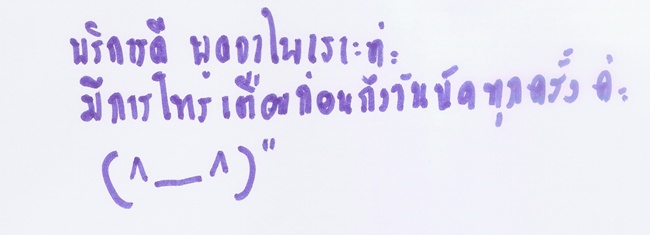 บริการดี พูดจาไพเราะค่ะ
มีการโทรเตือนก่อนถึงวันนัดทุกครั้ง ค่ะ
(^__^)"